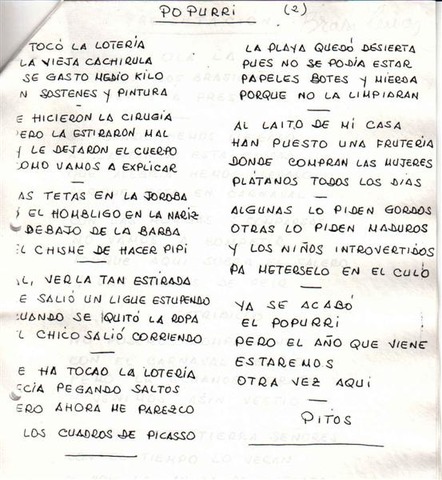 POPURRI (2)
TOCÓ LA LOTERÍA
LA VIEJA CACHIRULA
SE GASTO MEDIO KILO
N SOSTENES Y PINTURA
E HICIERON LA CIRUGÍA
ERO LA ESTIRARÓN MAL
Y LE DEJARÓN EL CUERPO
OMO VAMOS A EXPLICAR
AS TETAS EN LA JOROBA
EL HOMBLIGO EN LA NARIZ
DEBAJO DE LA BARBA
EL CHISME DE HACER PIPÍ
AL, VERLA TAN ESTIRADA
E SALIÓ UN LIGUE ESTUPENDO
CUANDO SE QUITÓ LA ROPA
L CHICO SALIÓ CORRIENDO
E HA TOCAO LA LOTERÍA
ECÍA PEGANDO SALTOS
ERO AHORA ME PAREZCO
LOS CUADROS DE PICASSO
LA PLAYA QUEDÓ DESIERTA
PUES NO SE PODÍA ESTAR
PAPELES BOTES Y MIERDA
PORQUE NO LA LIMPIARAN
AL LAITO DE MI CASA
HAN PUESTO UNA FRUTERIA
DONDE COMPRAN LAS MUJERES
PLÁTANOS TODOS LOS DÍAS
ALGUNAS LO PIDEN GORDOS
OTRAS LO PIDEN MADUROS
Y LOS NIÑOS INTROVERTIDOS
PA METERSELO EN EL CULO
YA SE ACABÓ
EL POPURRI
PERO EL AÑO QUE VIENE
ESTAREMOS
OTRA VEZ AQUÍ
PITOS